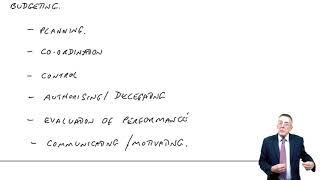 BUDGETING.
- PLANNING.
- CO-ORDINATION
- CONTROL
- AUTHORISING/DELEGATING
- EVALUATION OF PERFORMANCE
- COMMUNICATING/MOTIVATING.